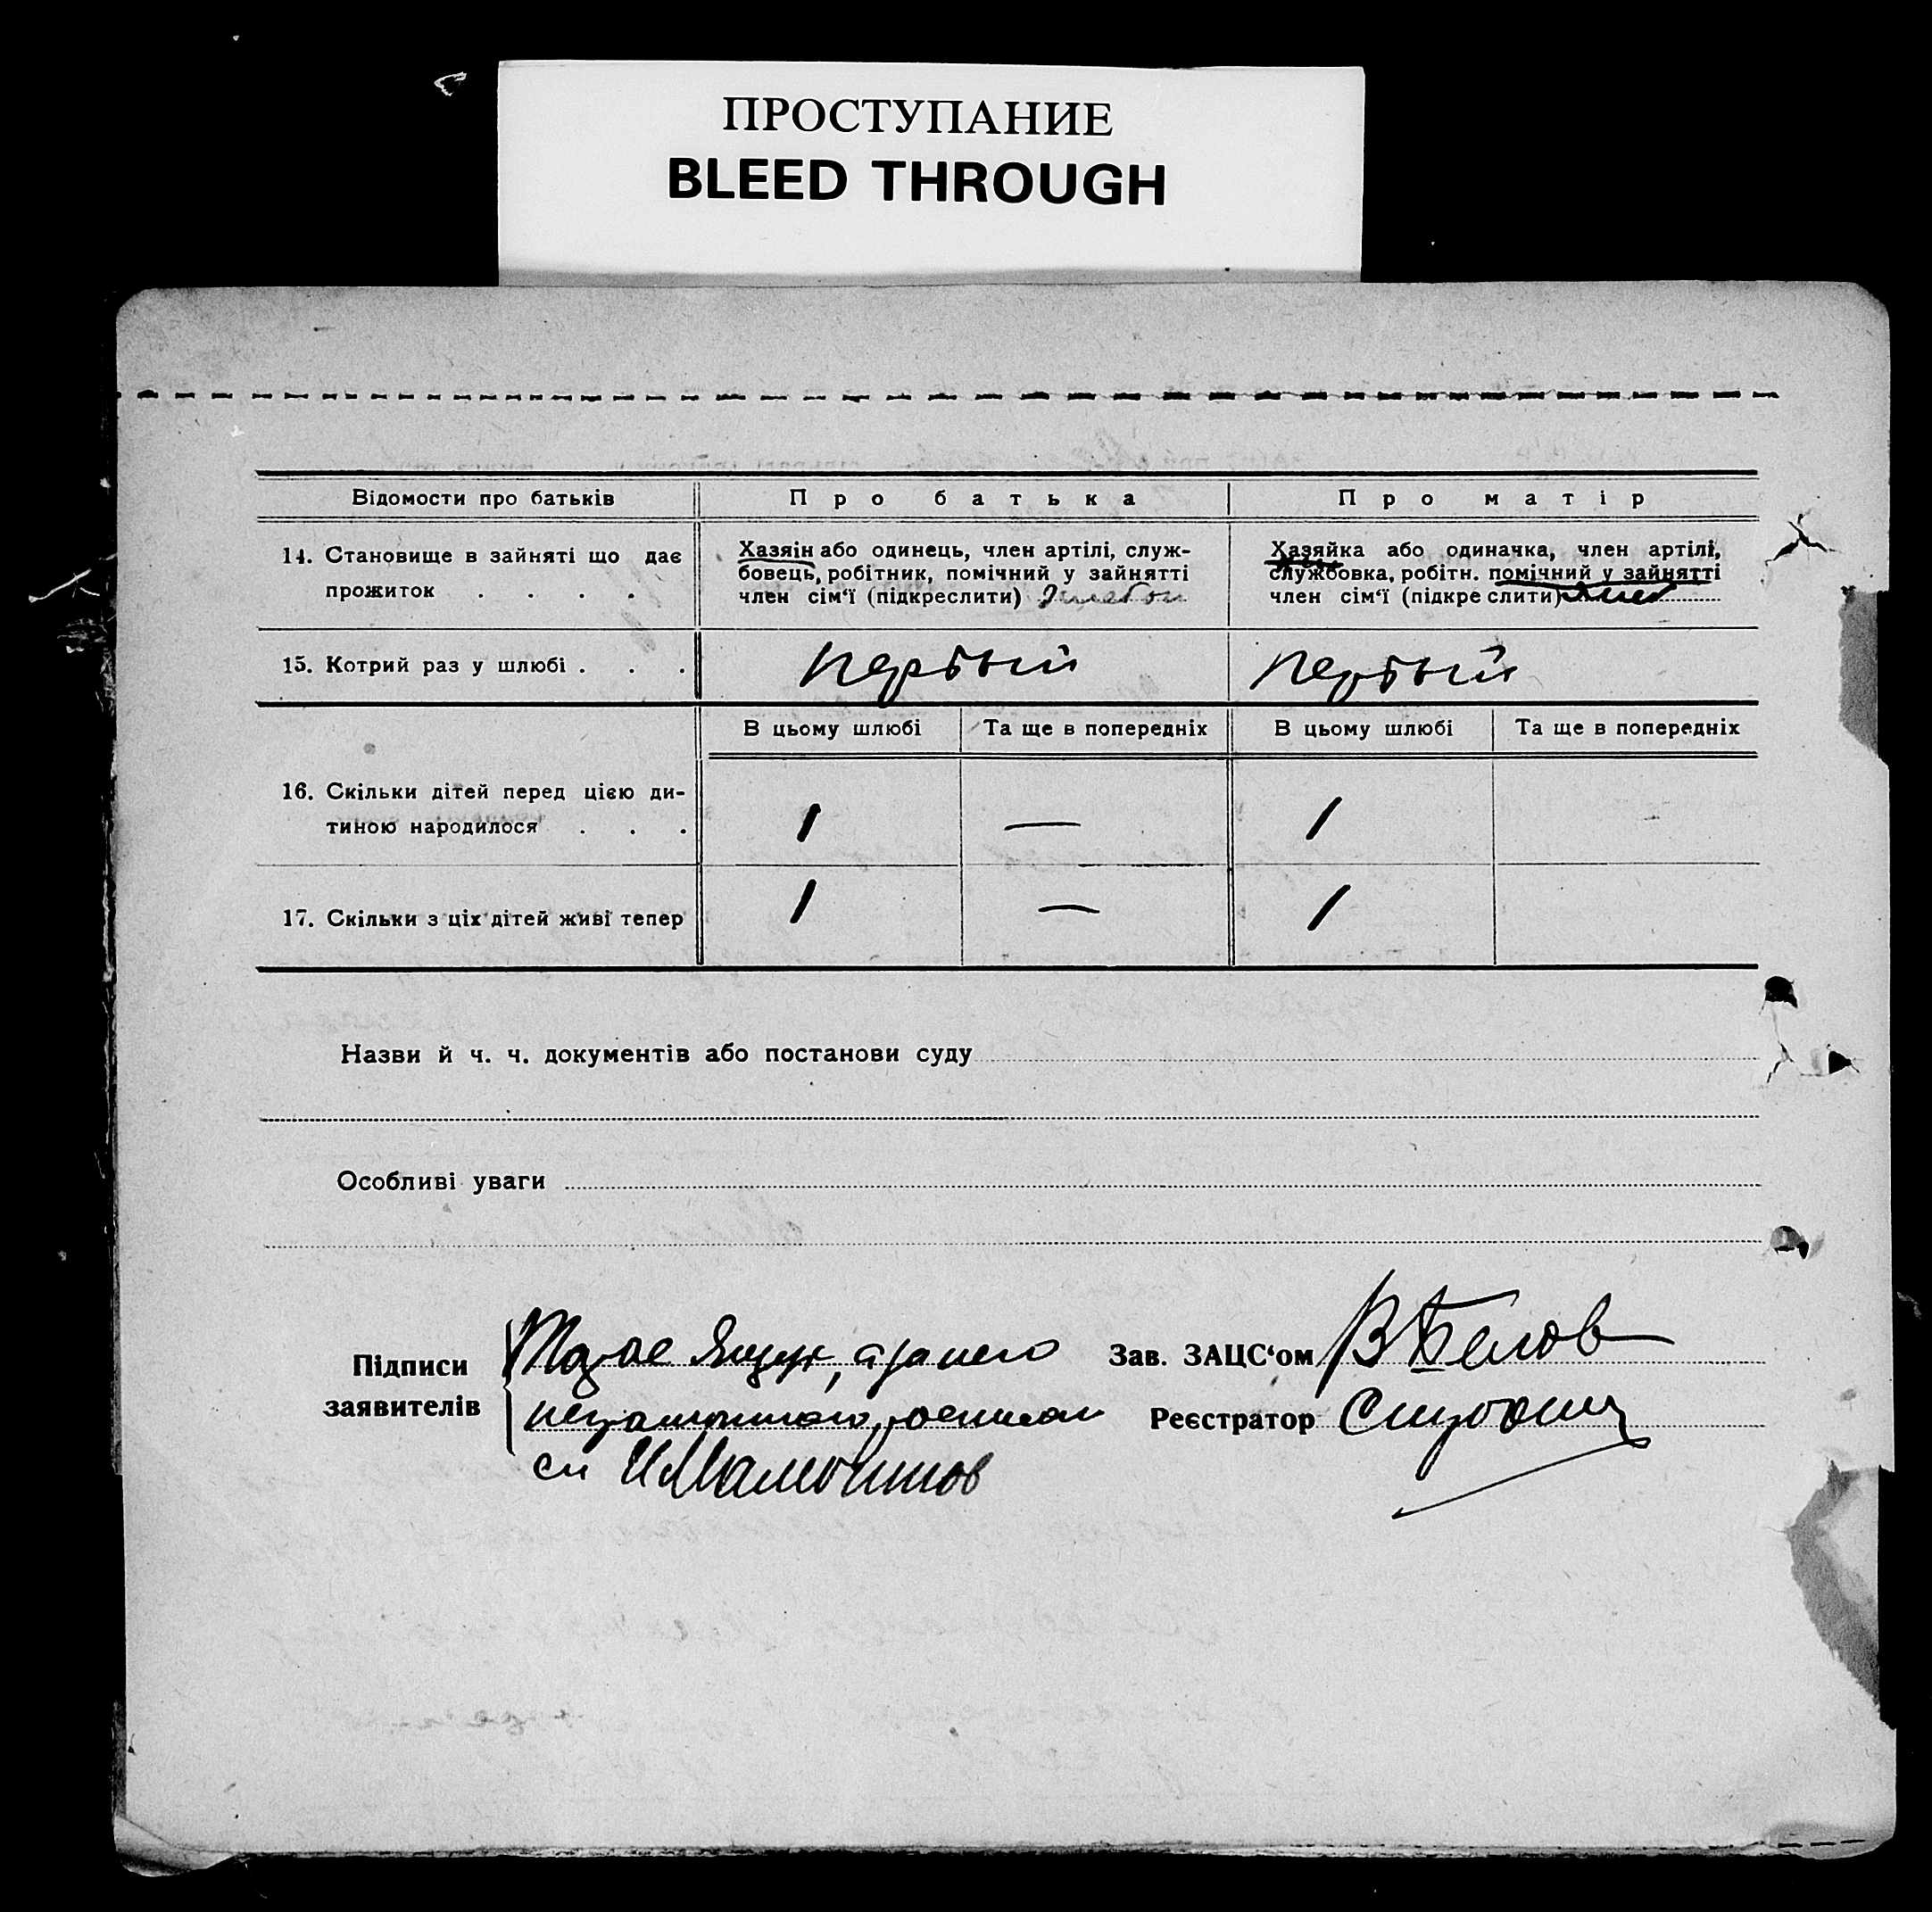 ПРОСТУПАНИЕ
BLEED THROUGH
Відомости про батьків
Про батька
Про матір
14. Становище в зайняті що дає
прожиток . . . .
Хазяін або одинець, член артілі, служ-
бовець, робітник, помічний у зайнятті
член сім‘ї (підкреслити)
Хазяйка або одиначка, член артілі,
службовка, робітн. помічний у зайнятті
член сім‘ї (підкреслити)
15. Котрий раз у шлюбі . . .
первый
первый
В цьому шлюбі
Та ще в попередніх
В цьому шлюбі
Та ще в попередніх
16. Скільки дітей перед цією ди-
тиною народилося . . .
1 — 1
17. Скільки з ціх дітей живі тепер
1 — 1
Назви й ч. ч. документів або постанови суду
Особливі уваги
Підписи
заявителів
за него
неграмотного
Зав. ЗАЦС‘ом В Белов
Реєстратор